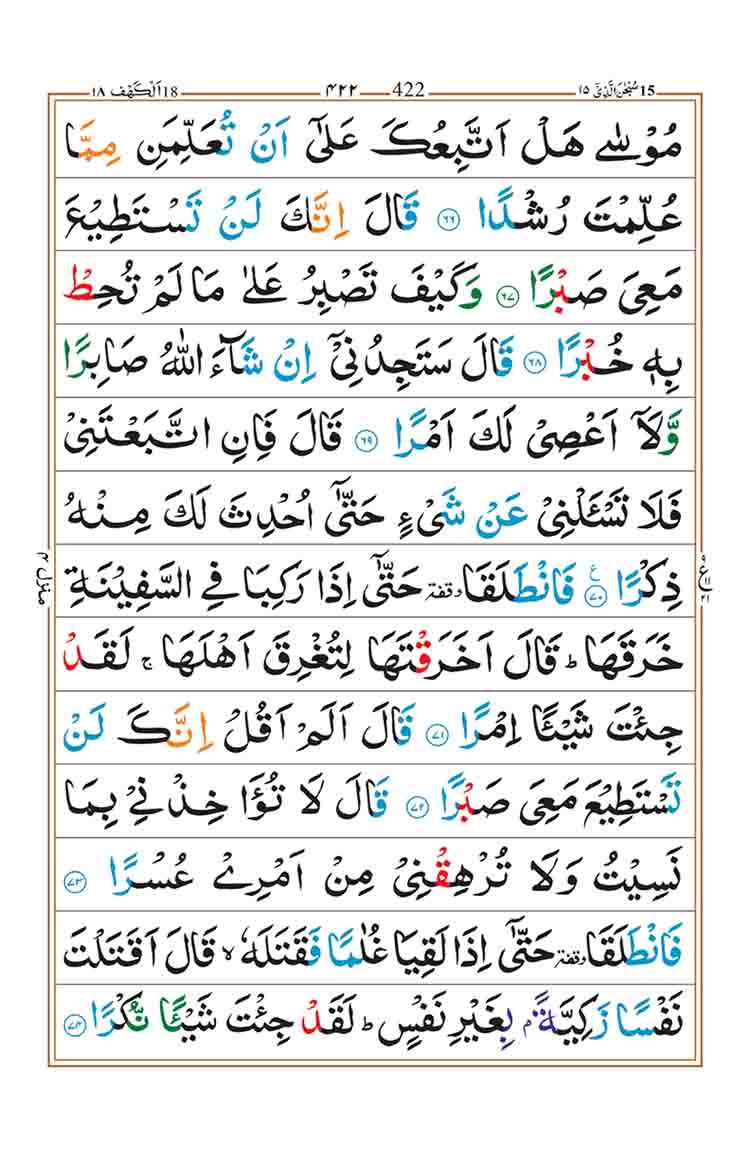 ١٨ اَلْكَهْف 18 ــ ۴۲۲ ــ 422 ــ ١٥ سُبْحٰنَ الَّذِیْۤ 15
مُوْسٰى هَلْ اَتَّبِعُكَ عَلٰۤى اَنْ تُعَلِّمَنِ مِمَّا
عُلِّمْتَ رُشْدًا ۝۶۶ قَالَ اِنَّكَ لَنْ تَسْتَطِیْعَ
مَعِیَ صَبْرًا ۝۶۷ وَكَیْفَ تَصْبِرُ عَلٰى مَا لَمْ تُحِطْ
بِهٖ خُبْرًا ۝۶۸ قَالَ سَتَجِدُنِیْۤ اِنْ شَآءَ اللّٰهُ صَابِرًا
وَّلَاۤ اَعْصِیْ لَكَ اَمْرًا ۝۶۹ قَالَ فَاِنِ اتَّبَعْتَنِیْ
فَلَا تَسْـَٔلْنِیْ عَنْ شَیْءٍ حَتّٰۤى اُحْدِثَ لَكَ مِنْهُ
ذِكْرًا ۝۷۰ ع فَانْطَلَقَا وقفة حَتّٰۤى اِذَا رَكِبَا فِی السَّفِیْنَةِ
خَرَقَهَا ؕ قَالَ اَخَرَقْتَهَا لِتُغْرِقَ اَهْلَهَا ۚ لَقَدْ
جِئْتَ شَیْـًٔا اِمْرًا ۝۷۱ قَالَ اَلَمْ اَقُلْ اِنَّكَ لَنْ
تَسْتَطِیْعَ مَعِیَ صَبْرًا ۝۷۲ قَالَ لَا تُؤَاخِذْنِیْ بِمَا
نَسِیْتُ وَلَا تُرْهِقْنِیْ مِنْ اَمْرِیْ عُسْرًا ۝۷۳
فَانْطَلَقَا وقفة حَتّٰۤى اِذَا لَقِیَا غُلٰمًا فَقَتَلَهٗ ۙ قَالَ اَقَتَلْتَ
نَفْسًا زَكِیَّةًۢ بِغَیْرِ نَفْسٍ ؕ لَقَدْ جِئْتَ شَیْـًٔا نُّكْرًا ۝۷۴
منزل ۴
۹ ع ۱۱ ۲۱